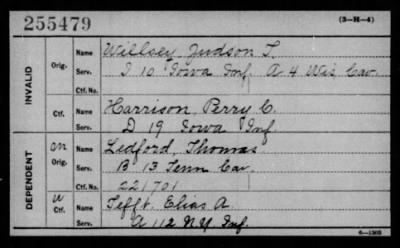 255479 (3-H-4)
INVALID
Orig. Name Willsey, Judson T.
Serv. I 10 Iowa Inf. A 4 Wis Cav.
Ctf. No.
Ctf. Name Harrison, Perry C.
Serv. D 19 Iowa Inf
DEPENDENT
on Orig. Name Ledford, Thomas
Serv. B 13 Tenn Cav.
Ctf. No. 221701
u Ctf. Name Tefft, Elias A.
Serv. A 112 N.Y. Inf.